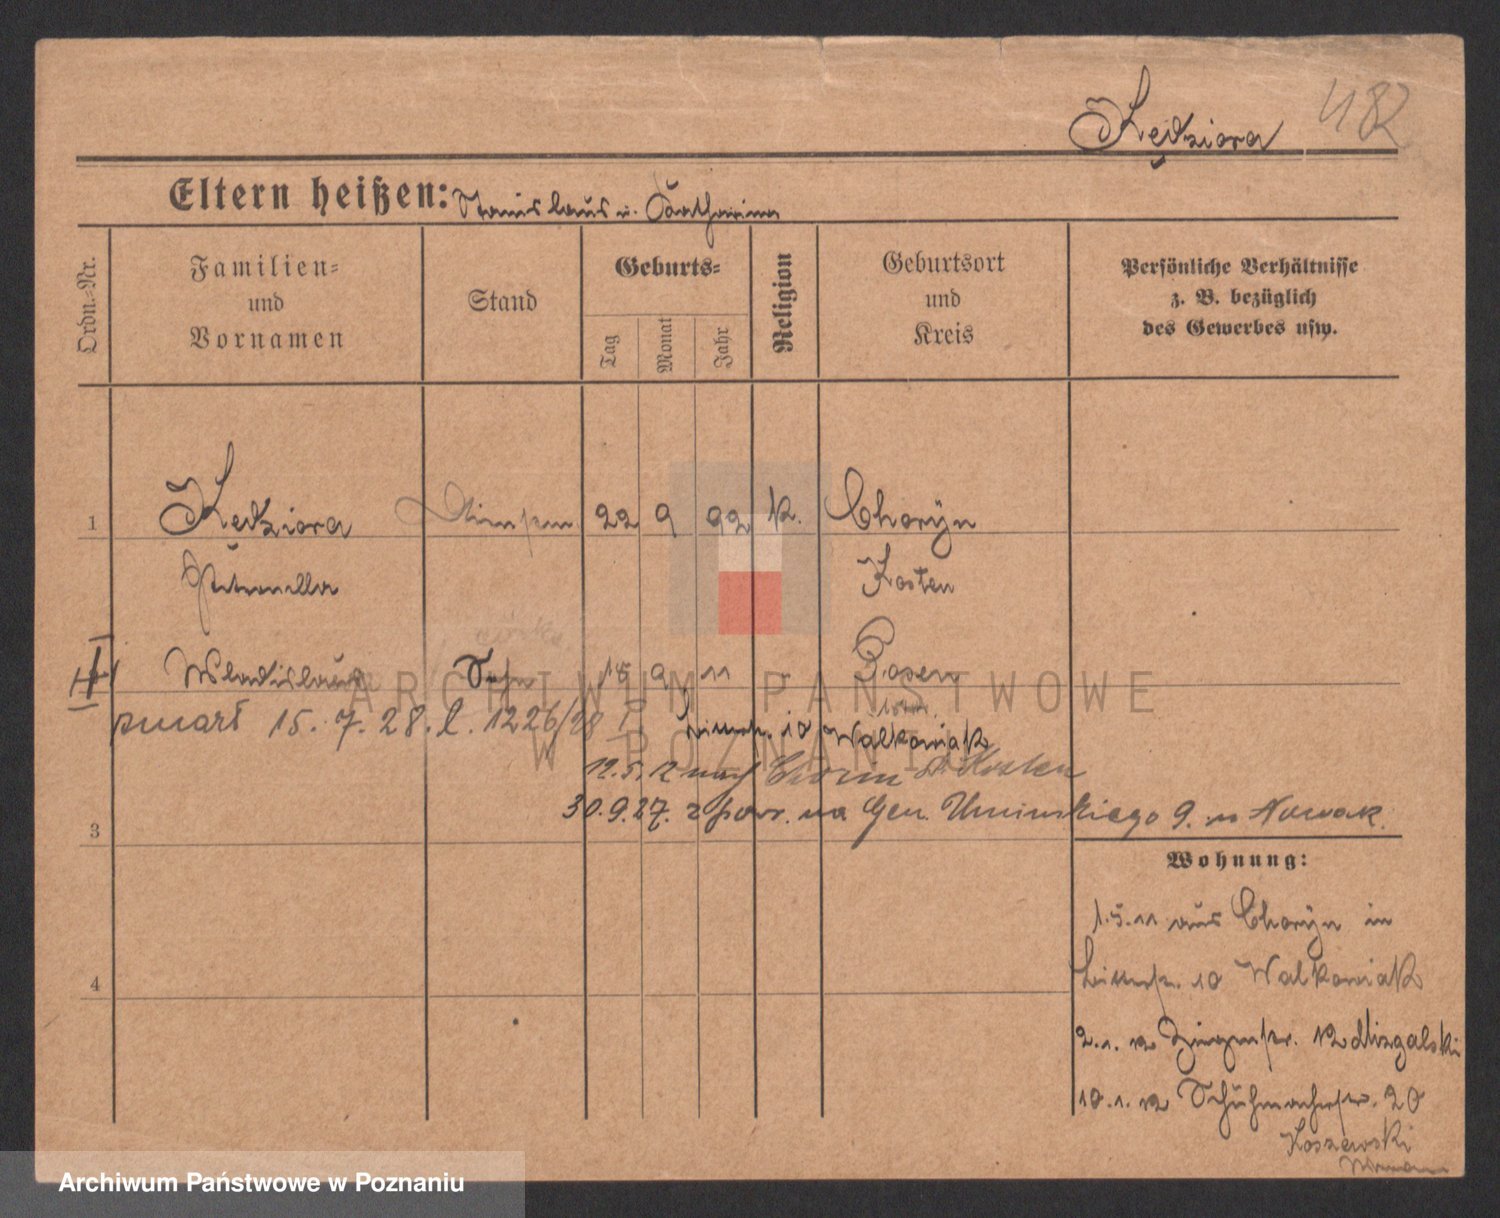 Kędziora 482
Eltern heißen: Stanislaus u. Katharina
Ordn.=Nr.
Familien=
und
Vornamen
Stand
Geburts=
Tag
Monat
Jahr
Religion
Geburtsort
und
Kreis
Persönliche Verhältnisse
z. B. bezüglich
des Gewerbes usw.
1 Kędziora 22 9 92 K. Choryn
Petronella Kosten
II Wladislaus Sohn 15 9 11 Posen
zmarł 15. 7. 28. l. 1226/28 10 Walkowiak
12.5.12 nach Kosten
30.9.27. z pow. na Gen. Umińskiego 9. Nowak.
3
Wohnung:
1.5.11 aus Choryn in
10 Walkowiak
4
2.1.12 12 Mizgalski
10.1.12 Schuhmacherstr. 20
Koszewski
ARCHIWUM PAŃSTWOWE
W POZNANIU
Archiwum Państwowe w Poznaniu